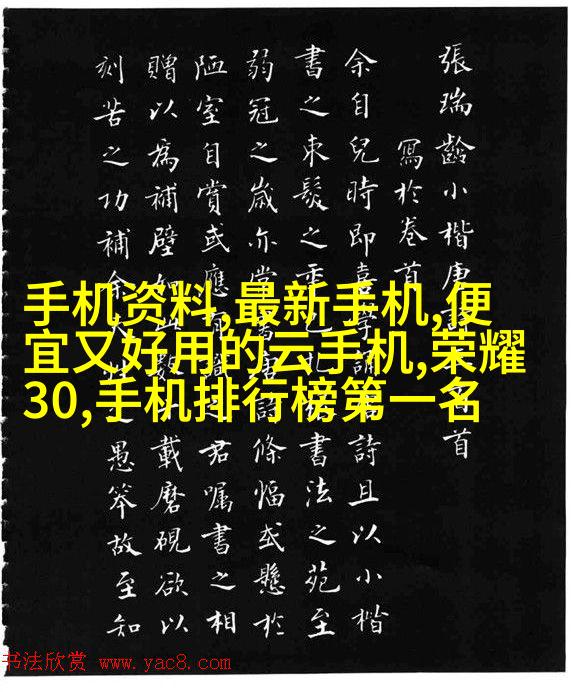 張瑞齡小楷唐詩首
寫於卷首
余自兒時即喜學誦詩且以小楷
書之束髮之書法之苑至
弱冠之歲亦常唐詩條幅或懸於
陋室自賞或應之君囑書之相
贈以為補壁如載磨硯欲以
刻苦之功補余之愚笨故至知
手机资料,最新手机,便
宜又好用的云手机,荣耀
30,手机排行榜第一名
书法欣赏 www.yac8.com